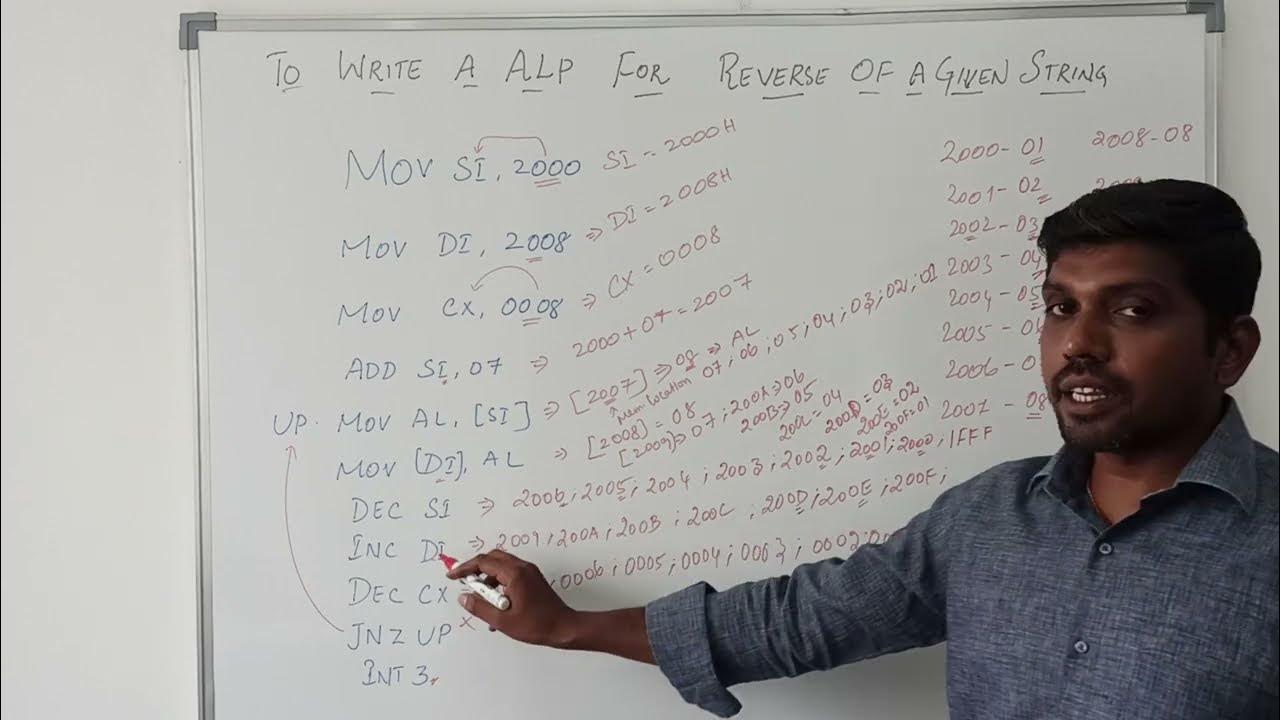 TO WRITE A ALP FOR REVERSE OF A GIVEN STRING
MOV SI, 2000 SI - 2000H
MOV DI, 2008 => DI = 2008H
MOV CX, 0008 => CX = 0008
ADD SI, 07 => 2000 + 07 = 2007
UP. MOV AL, [SI] => [2007] => 08 => AL
Mem location 07; 06; 05; 04; 03; 02; 01
MOV [DI], AL => [2008] = 08
[2009] => 07; 200A => 06
200B => 05
200C = 04
200D = 03
200E = 02
200F = 01
DEC SI => 2006; 2005; 2004; 2003; 2002; 2001; 2000; 1FFF
INC DI => 2009; 200A; 200B; 200C; 200D; 200E; 200F;
DEC CX ; 0006; 0005; 0004; 0003; 0002;
JNZ UP x
INT 3.
2000 - 01 2008 - 08
2001 - 02
2002 - 03
2003 - 04
2004 - 05
2005 -
2006 -
2007 - 08